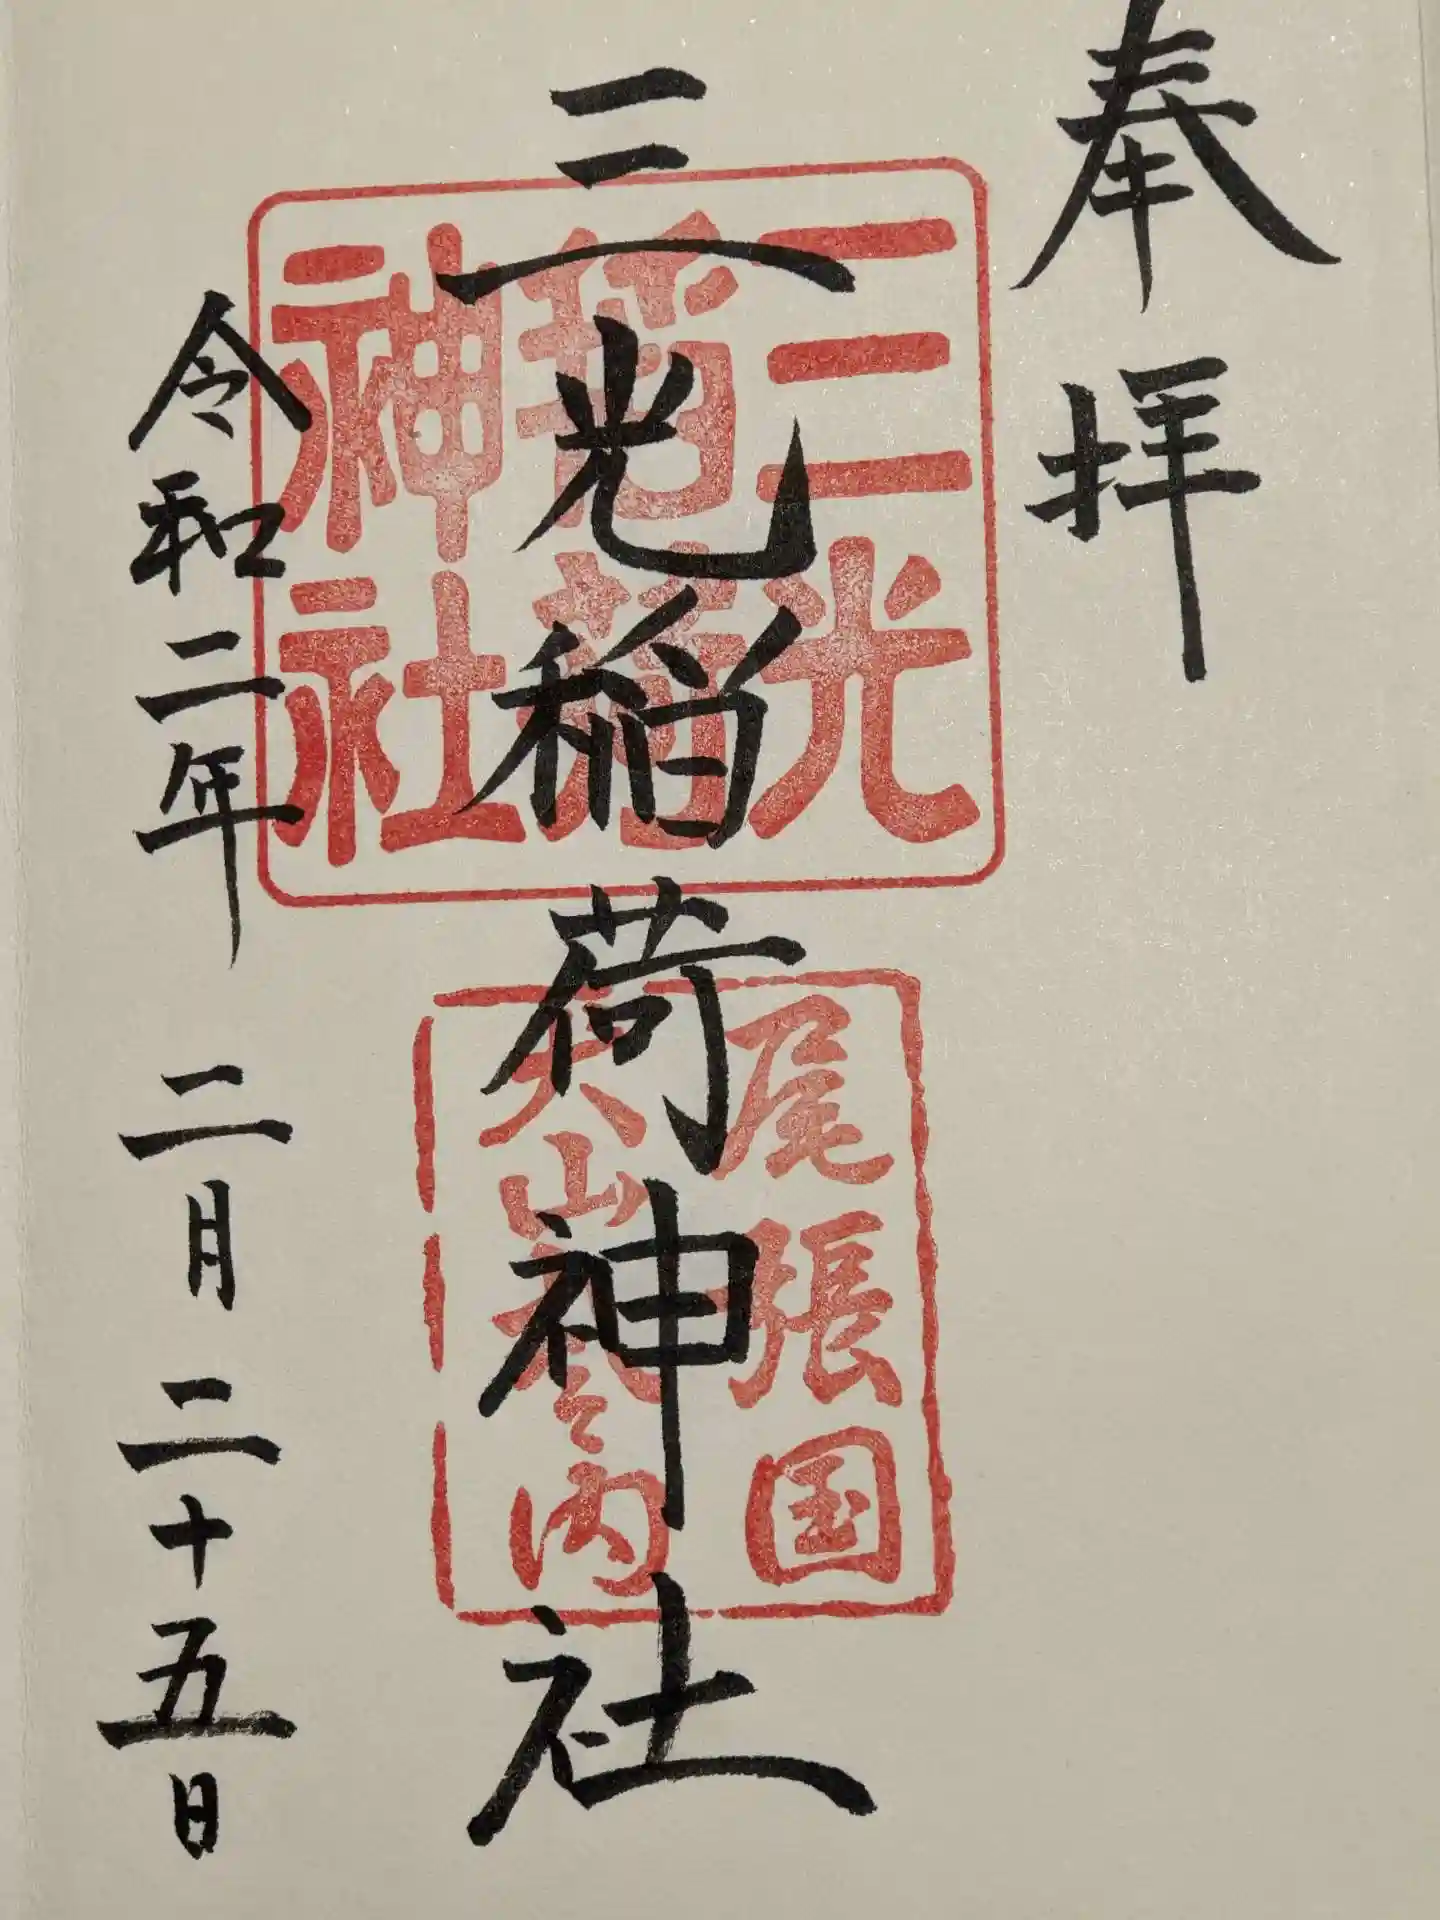 奉拝
三光稲荷神社
令和二年 二月二十五日
三光
稲荷
神社
尾張国
犬山城之内